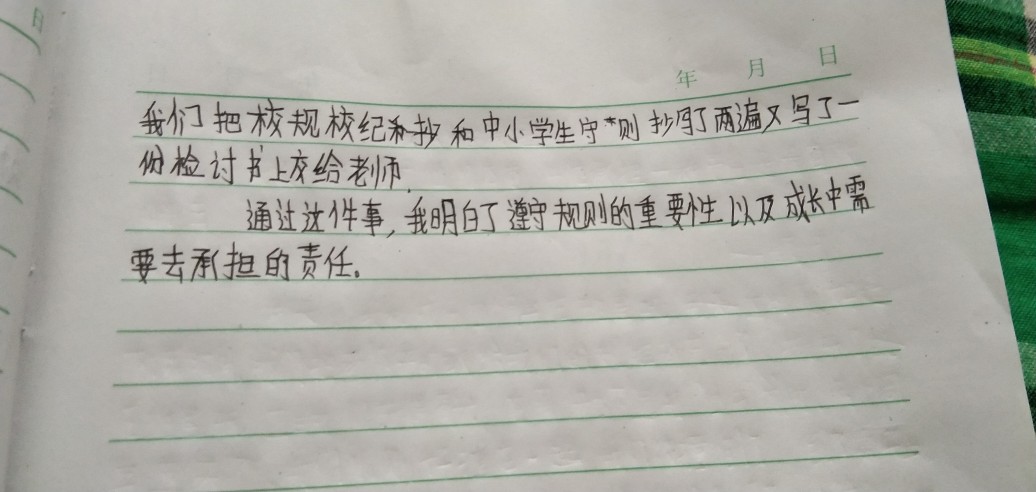 日
年 月 日
我们把校规校纪和抄和中小学生守则抄写了两遍又写了一
份检讨书上交给老师.
通过这件事,我明白了遵守规则的重要性以及成长中需
要去承担的责任。